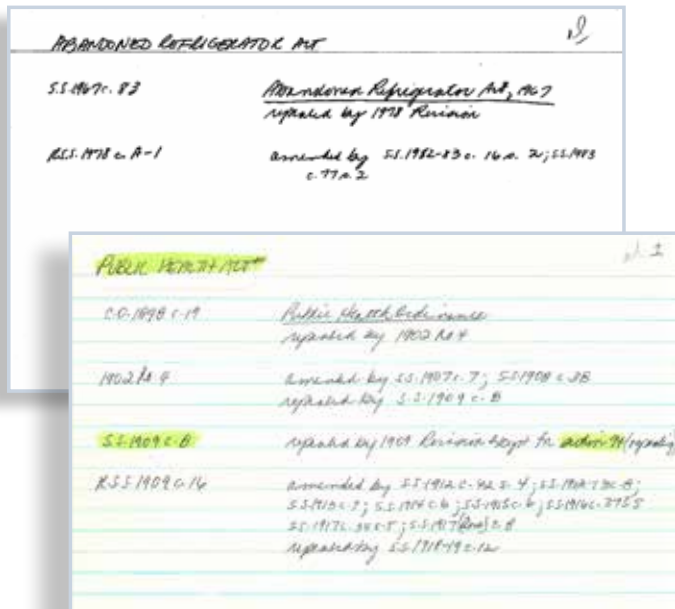 ABANDONED REFRIGERATOR ACT
S.S. 1967 c. 83 Abandoned Refrigerator Act, 1967
repealed by 1978 Revision
R.S.S. 1978 c. A-1 amended by S.S. 1982-83 c. 16 s. 2; S.S. 1983
c. 77 s. 2
PUBLIC HEALTH ACT
C.O. 1898 c. 19 Public Health Ordinance
repealed by 1902
1902 amended by S.S. 1907 c. 7; S.S. 1908 c. 38
repealed by S.S. 1909 c. 8
S.S. 1909 c. 8 repealed by 1909 Revision except for section 74 (repealing)
R.S.S. 1909 c. 16 amended by S.S. 1912 c. 42 s. 4;
S.S. 1914 c. 6; S.S. 1915 c. 6; S.S. 1916 c. 37 s 5
S.S. 1917 c. 34 s. 5; S.S. 1917
repealed by S.S. 1918-19 c. 12